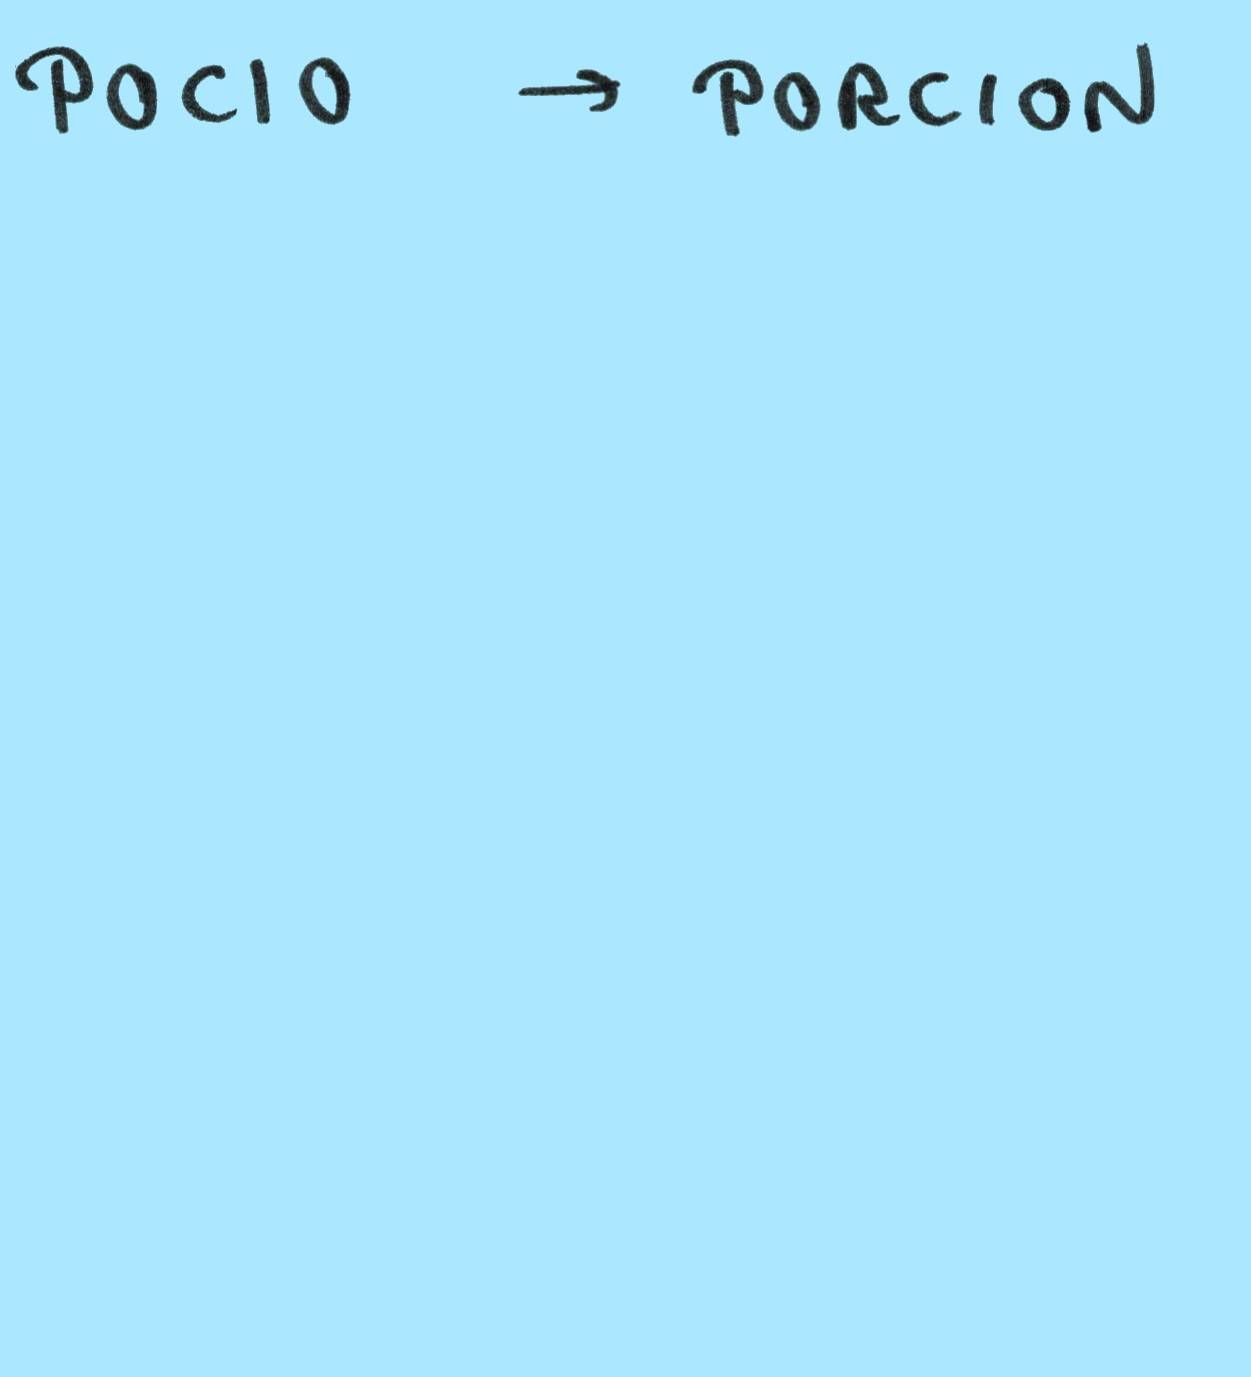 POCIO → PORCION